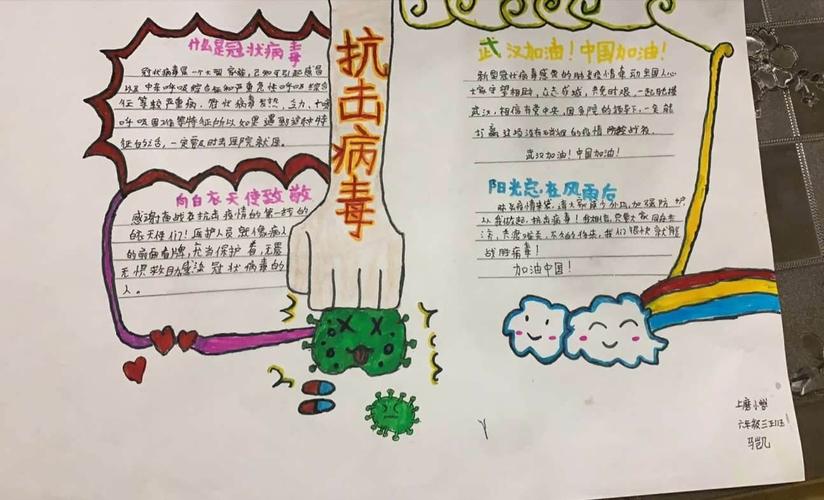 什么是冠状病毒
冠状病毒是一个大型病毒家族，已知可引起感冒
以及中东呼吸综合征和严重急性呼吸综合
征等较严重疾病。冠状病毒发热、乏力、
呼吸困难等特征的以如果遇到这种特
征的话，一定要及时去医院就医。
抗击病毒
向白衣天使致敬
感谢奋战在抗击疫情的第一线的
白衣天使们！医护人员就像病人
的盾牌，充当保护着，无畏
无惧救助感染冠状病毒的
人。
武汉加油！中国加油！
新型冠状病毒感染的肺炎疫情牵动全国人心
守望相助，众志成城，共克时艰，一起驰援
武汉，相信有党中央、国务院的领导下，一定能
打赢这场没有硝烟的疫情战役。
武汉加油！中国加油！
阳光总在风雨后
疫情，请大家加强防护
从我做起，抗击病毒！我相信，只要大家
共渡难关，不久的将来，我们很快就能
战胜病毒！
加油中国！
上磨小学
六年级三班